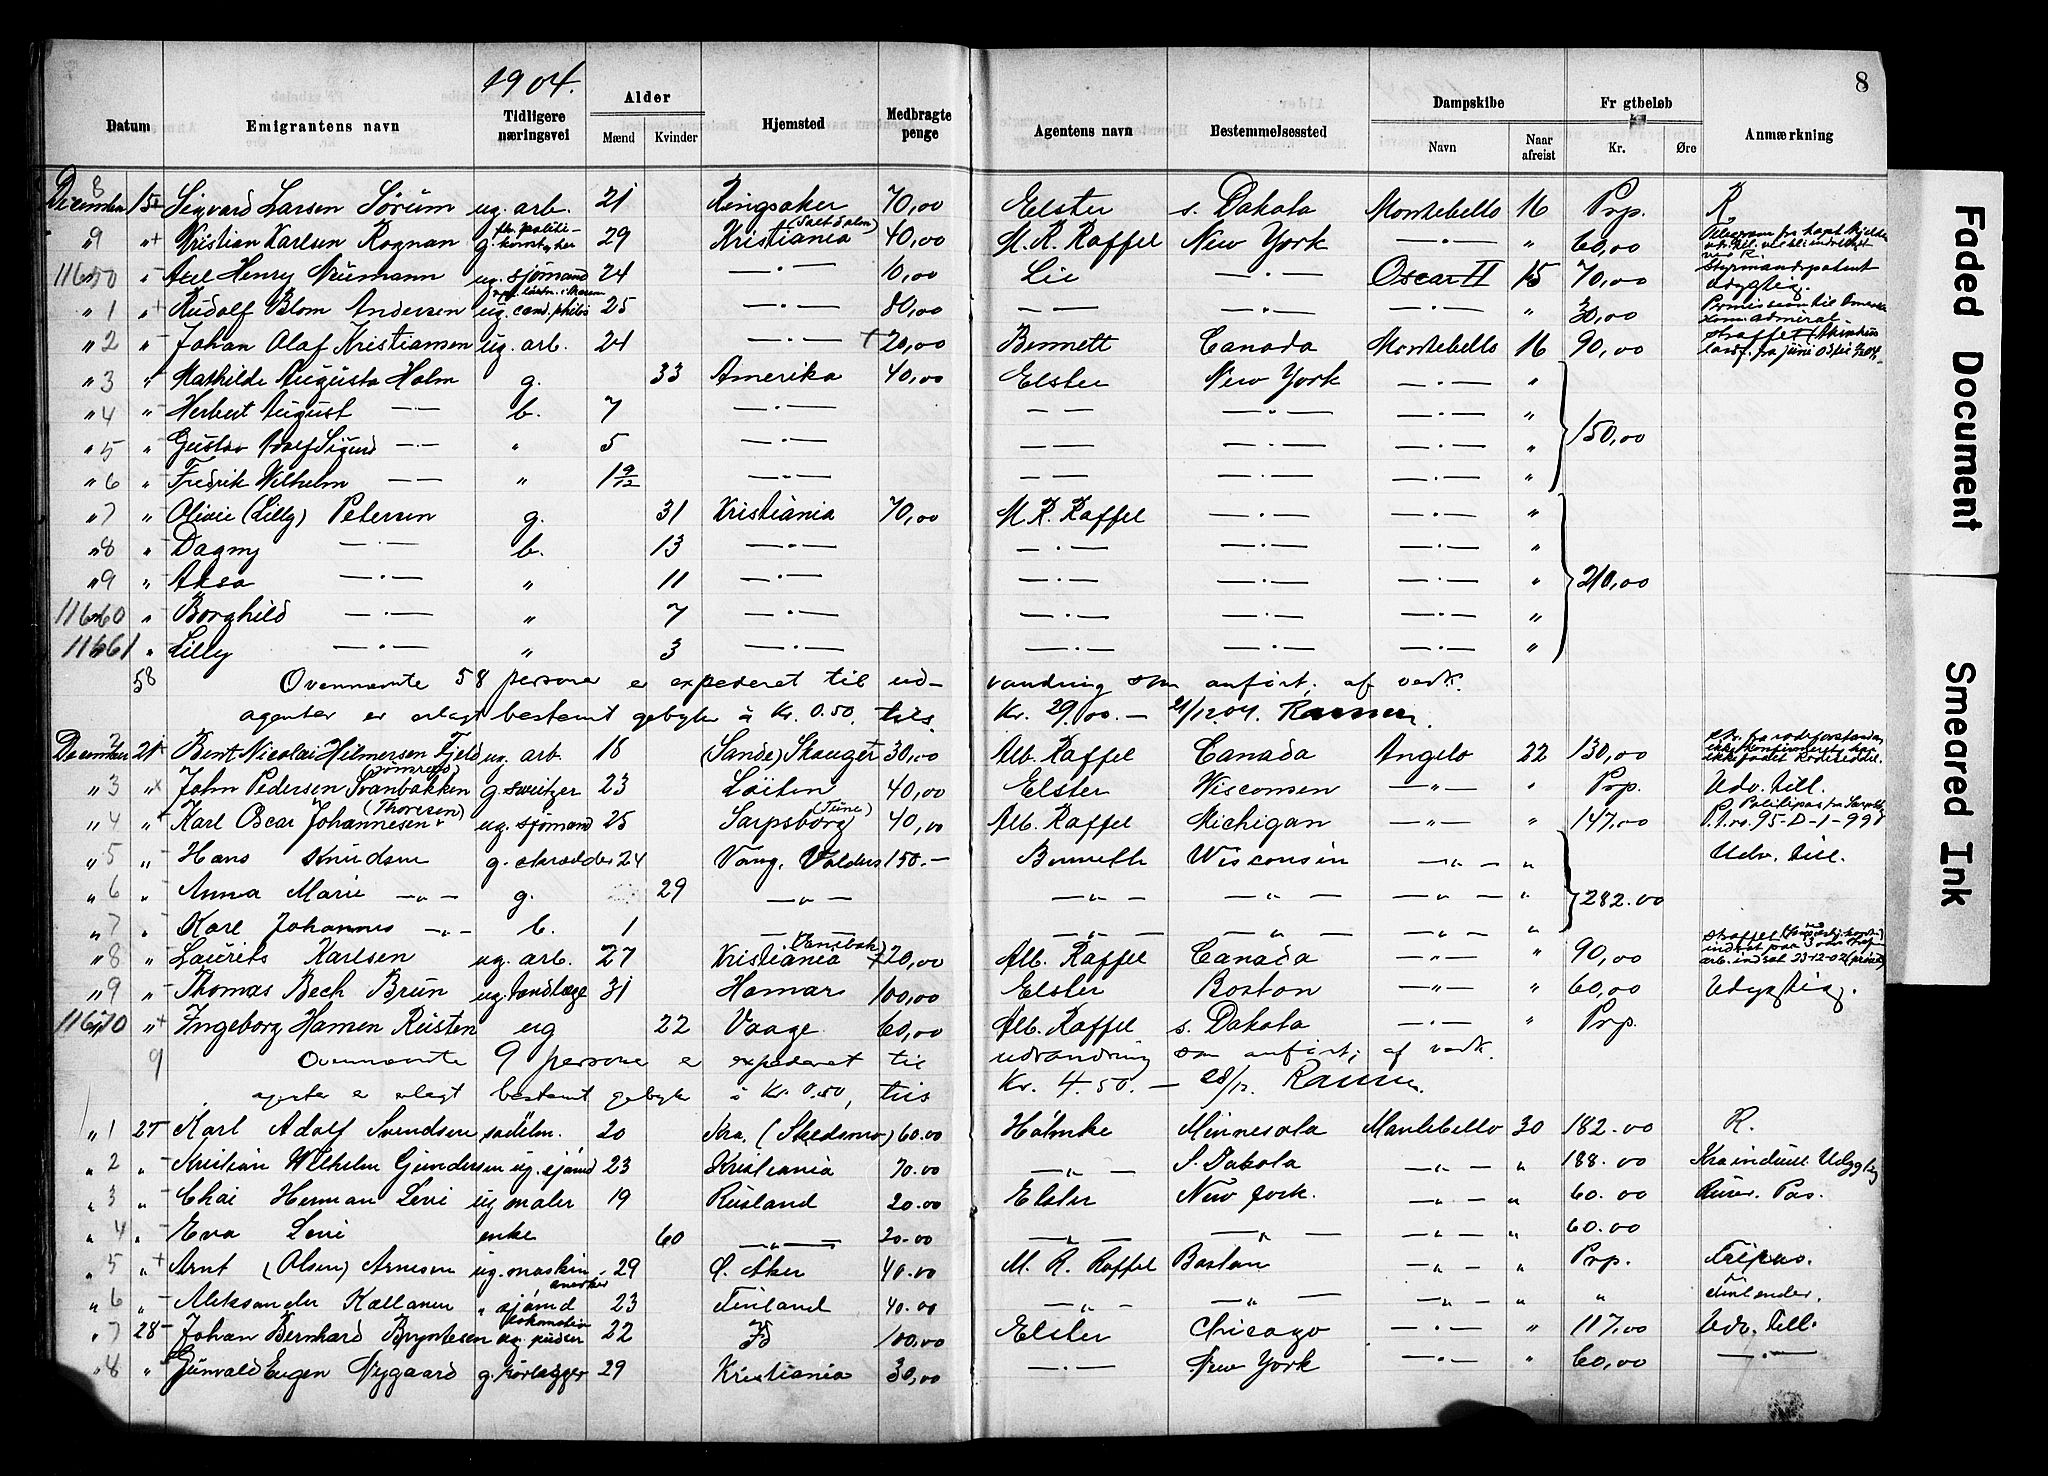 1904.
8
Datum Emigrantens navn Tidligere næringsvei Alder Mænd Kvinder Hjemsted Medbragte penge Agentens navn Bestemmelsessted Dampskibe Navn Naar afreist Fr gtbeløb Kr. Øre Anmærkning
December 8 15 Sigvard Larsen Sørum ug. arb. 21 Ringsaker 70,00 Elster s. Dakota Montebello 16 Prp. R
" 9 " + Kristian Karlsen Rognan g. fh. politikonstabel 29 Kristiania (Saltdalen) 40,00 M. R. Raffel New York — . — " 60,00
11650 " Axel Henry Neumann ug. sjømand 24 — . — 10,00 Lie — . — Oscar II 15 70,00 Styrmandspatent Udygtig.
" 1 " + Rudolf Blom Andersen ug. cand. philos 25 — . — 80,00 — — — . — — . — " 30,00 Permission til Amerika kom. admiral
" 2 " Johan Olaf Kristiansen ug. arb. 24 — . — + 20,00 Bennett Canada Montebello 16 90,00
" 3 " Mathilde Augusta Holm g. 33 Amerika 40,00 Elster New York — . — "
" 4 " Herbert August — — b. 7 — . — — — — " — — . — " 150,00
" 5 " Gustav Adolf Sigurd — . — " 5 — . — — — — . — — . — "
" 6 " Fredrik Wilhelm — — " 1 9/12 — . — — — — . — — . — "
" 7 " Olivie (Lilly) Petersen g. 31 Kristiania 70,00 M. R. Raffel — . — — . — "
" 8 " Dagny — . — b. 13 — . — — . — — . — — . — "
" 9 " Aksa — . — " 11 — . — — . — — . — — . — " 210,00
11660 " Borghild — . — " 7 — . — — . — — . — "
11661 " Lilly — . — " 3 — . — — . — — . — — . — "
58 Ovennævnte 58 persone er expederet til udvandring som anført; af vedk.
agenter er erlagt bestemt gebyr à Kr. 0.50, tils. Kr. 29.00. — 21/12.04.
December 2 21 Bent Nicolai Hilmersen Fjeld ug. arb. 18 (Sande) Skauger 30,00 Alb. Raffel Canada Angelo 22 130,00
" 3 " x John Pedersen Svanbakken g. sveitzer 23 Løiten 40,00 Elster Wisconsin — " — " Prp. Udv. till.
" 4 " + Karl Oscar Johannesen (Thoresen) ug. sjømand 25 Sarpsborg (Tune) 40,00 Alb. Raffel Michigan — " — " 147,00
" 5 " Hans Knudsen g. skrædder 24 Vang, Valders 150.— Bennett Wisconsin — " — " Udv. till.
" 6 " Anna Marie — " — g. 29 — " — — " — — " — — " — " 282.00
" 7 " Karl Johannes — " — b. 1 — " — — " — — " — — " — "
" 8 " Laurits Karlsen ug. arb. 27 Kristiania + 20,00 Alb. Raffel Canada — " — " 90,00
" 9 " Thomas Bech Brun ug. tandlæge 31 Hamar 100,00 Elster Boston — " — " 60,00 Udygtig.
11670 " + Ingeborg Hansen Rusten ug 22 Vaage 60,00 Alb. Raffel s. Dakota — . — " Prp.
9 Ovennævnte 9 persone er expederet til udvandring som anført; af vedk.
agenter er erlagt bestemt gebyr à Kr. 0.50, tils Kr. 4.50. — 28/12.
" 1 27 Karl Adolf Svendsen sadelm. 20 Kra. (Skedsmo) 60.00 Hähnke Minnesota Montebello 30 182.00 R.
" 2 " Kristian Wilhelm Gundersen ug. sjømd 23 Kristiania 70.00 — " — S. Dakota — " — " 188.00 Kra innrull. Udygtig
" 3 " Chai Herman Levi ug maler 19 Rusland 20.00 Elster New York. — " — " 60.00 Russ. Pas.
" 4 " Eva Levi enke 60 — " — 20.00 — " — — " — — " — " 60.00
" 5 " + Arnt (Olsen) Arnesen ug. maskin 29 Ø. Aker 40.00 M. R. Raffel Boston — " — " Prp. Fripas.
" 6 " Aleksander Kallanen " sjømd 23 Finland 40.00 — " — — " — — " — " " Finlender.
" 7 28 Johan Bernhard Bryntesen ug. lokomotiv pudser 22 Id 100,00 Elster Chicago — . — " 117,00 Udv. Till.
" 8 " Gunvald Eugen Nygaard g. rørlægger 29 Kristiania 30,00 — . — New York — . — " 60,00 — . —
Faded Document
Smeared Ink